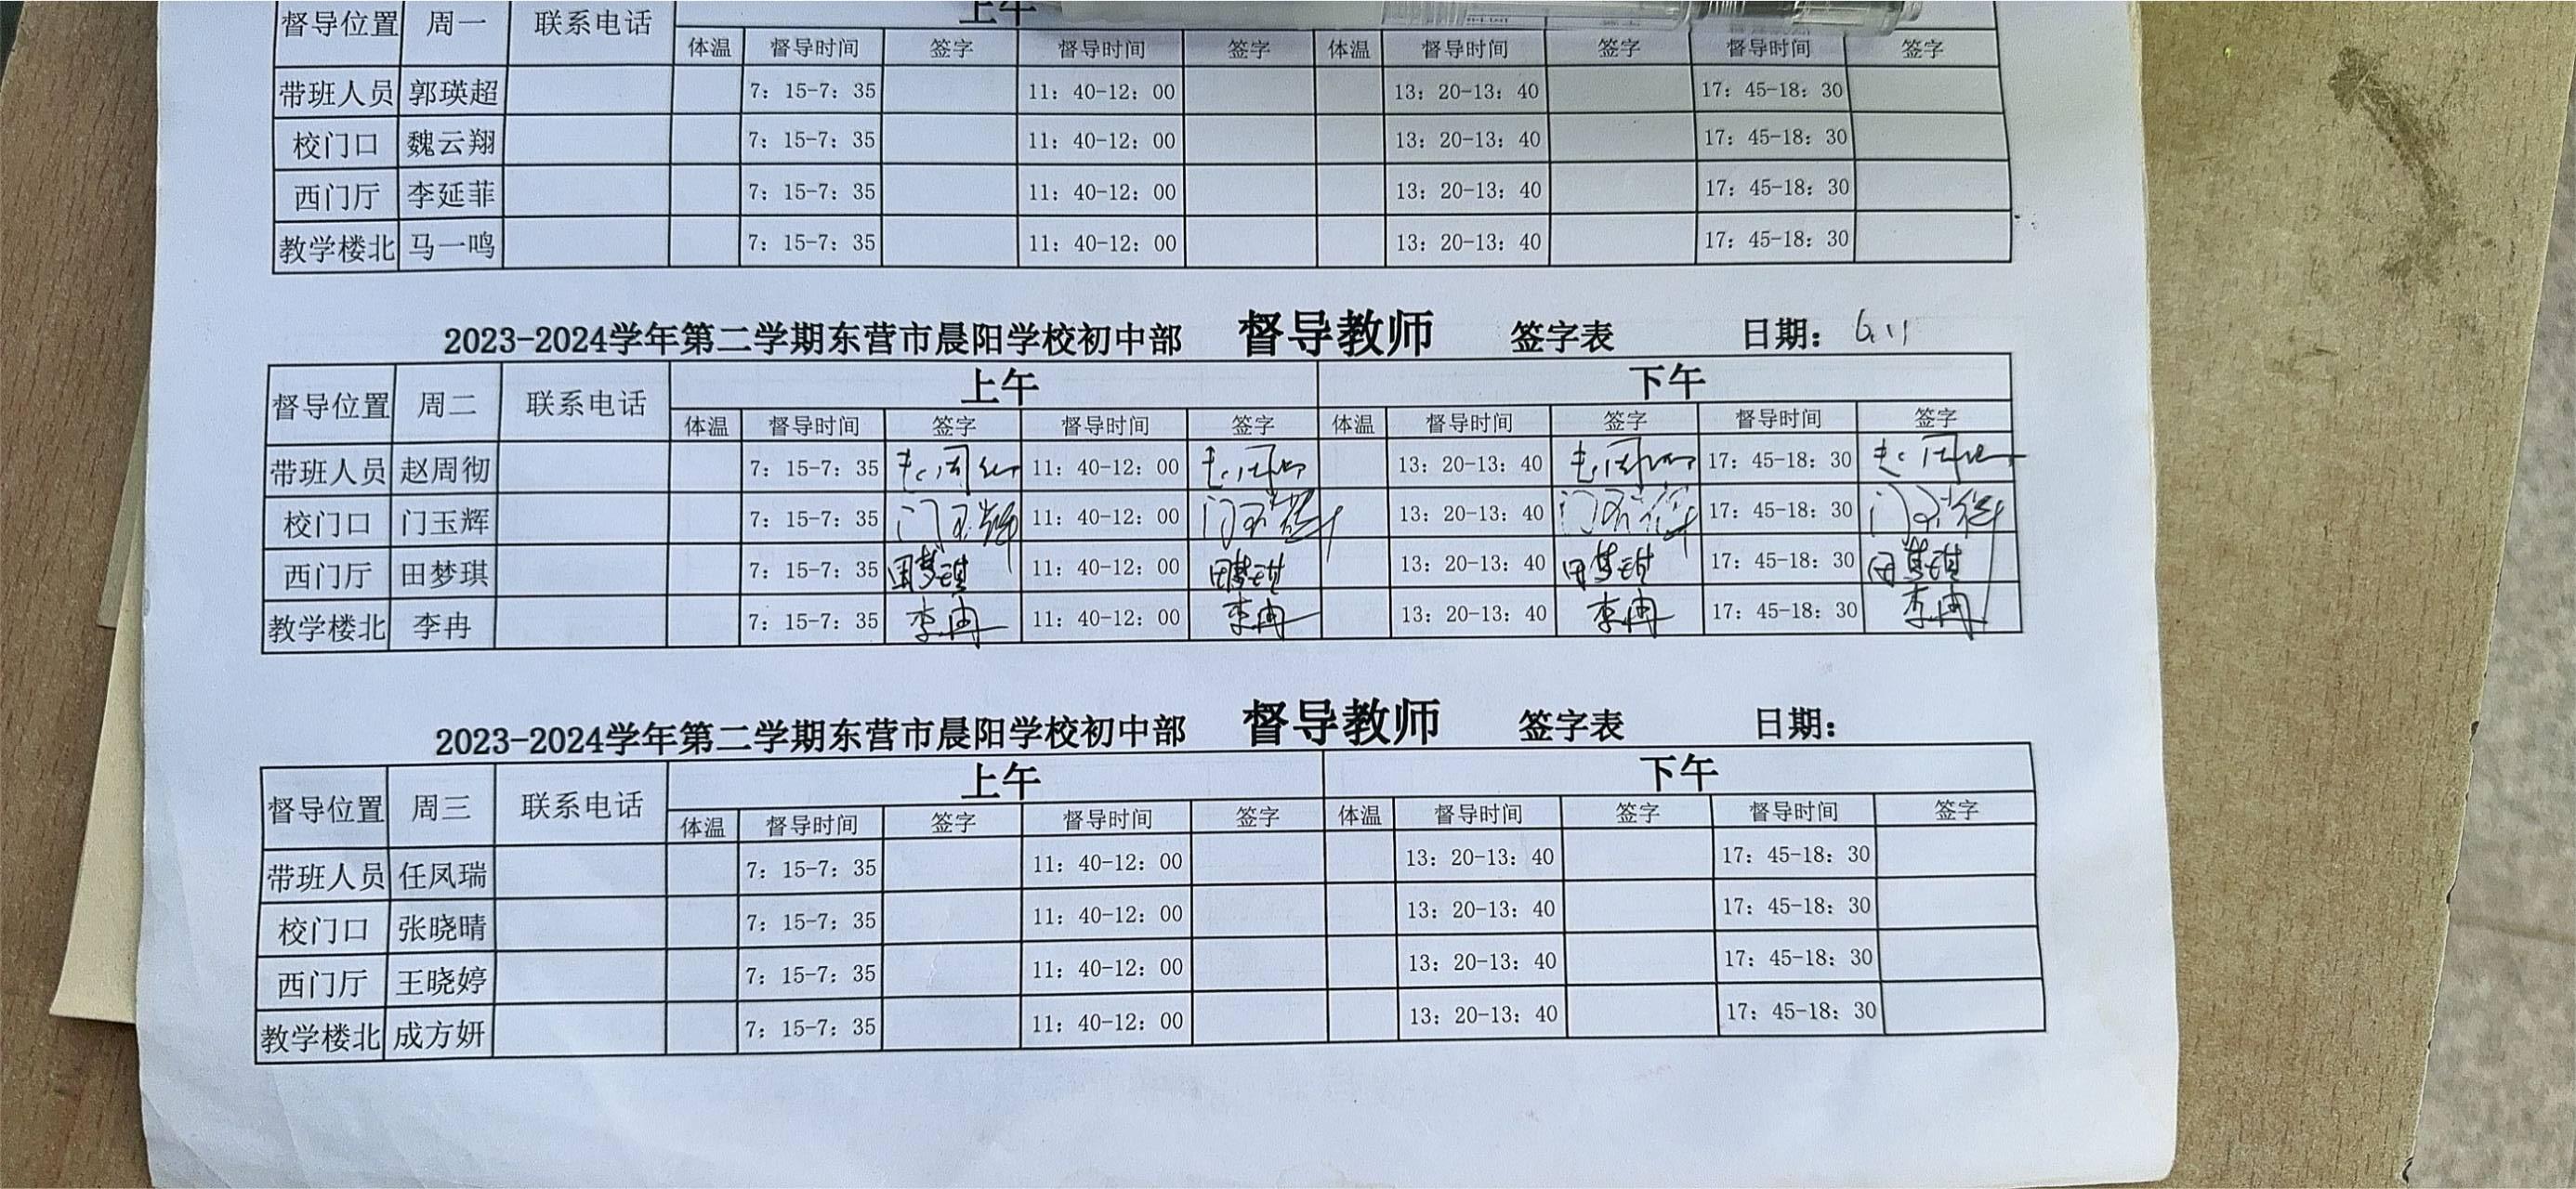 督导位置 周一 联系电话 上午
体温 督导时间 签字 督导时间 签字 体温 督导时间 签字 督导时间 签字
带班人员 郭瑛超 7：15-7：35 11：40-12：00 13：20-13：40 17：45-18：30
校门口 魏云翔 7：15-7：35 11：40-12：00 13：20-13：40 17：45-18：30
西门厅 李延菲 7：15-7：35 11：40-12：00 13：20-13：40 17：45-18：30
教学楼北 马一鸣 7：15-7：35 11：40-12：00 13：20-13：40 17：45-18：30
2023-2024学年第二学期东营市晨阳学校初中部 督导教师 签字表 日期：6.11
督导位置 周二 联系电话 上午 下午
体温 督导时间 签字 督导时间 签字 体温 督导时间 签字 督导时间 签字
带班人员 赵周彻 7：15-7：35 11：40-12：00 13：20-13：40 17：45-18：30
校门口 门玉辉 7：15-7：35 门玉辉 11：40-12：00 门玉辉 13：20-13：40 门玉辉 17：45-18：30 门玉辉
西门厅 田梦琪 7：15-7：35 田梦琪 11：40-12：00 田梦琪 13：20-13：40 田梦琪 17：45-18：30 田梦琪
教学楼北 李冉 7：15-7：35 李冉 11：40-12：00 李冉 13：20-13：40 李冉 17：45-18：30 李冉
2023-2024学年第二学期东营市晨阳学校初中部 督导教师 签字表 日期：
督导位置 周三 联系电话 上午 下午
体温 督导时间 签字 督导时间 签字 体温 督导时间 签字 督导时间 签字
带班人员 任凤瑞 7：15-7：35 11：40-12：00 13：20-13：40 17：45-18：30
校门口 张晓晴 7：15-7：35 11：40-12：00 13：20-13：40 17：45-18：30
西门厅 王晓婷 7：15-7：35 11：40-12：00 13：20-13：40 17：45-18：30
教学楼北 成方妍 7：15-7：35 11：40-12：00 13：20-13：40 17：45-18：30